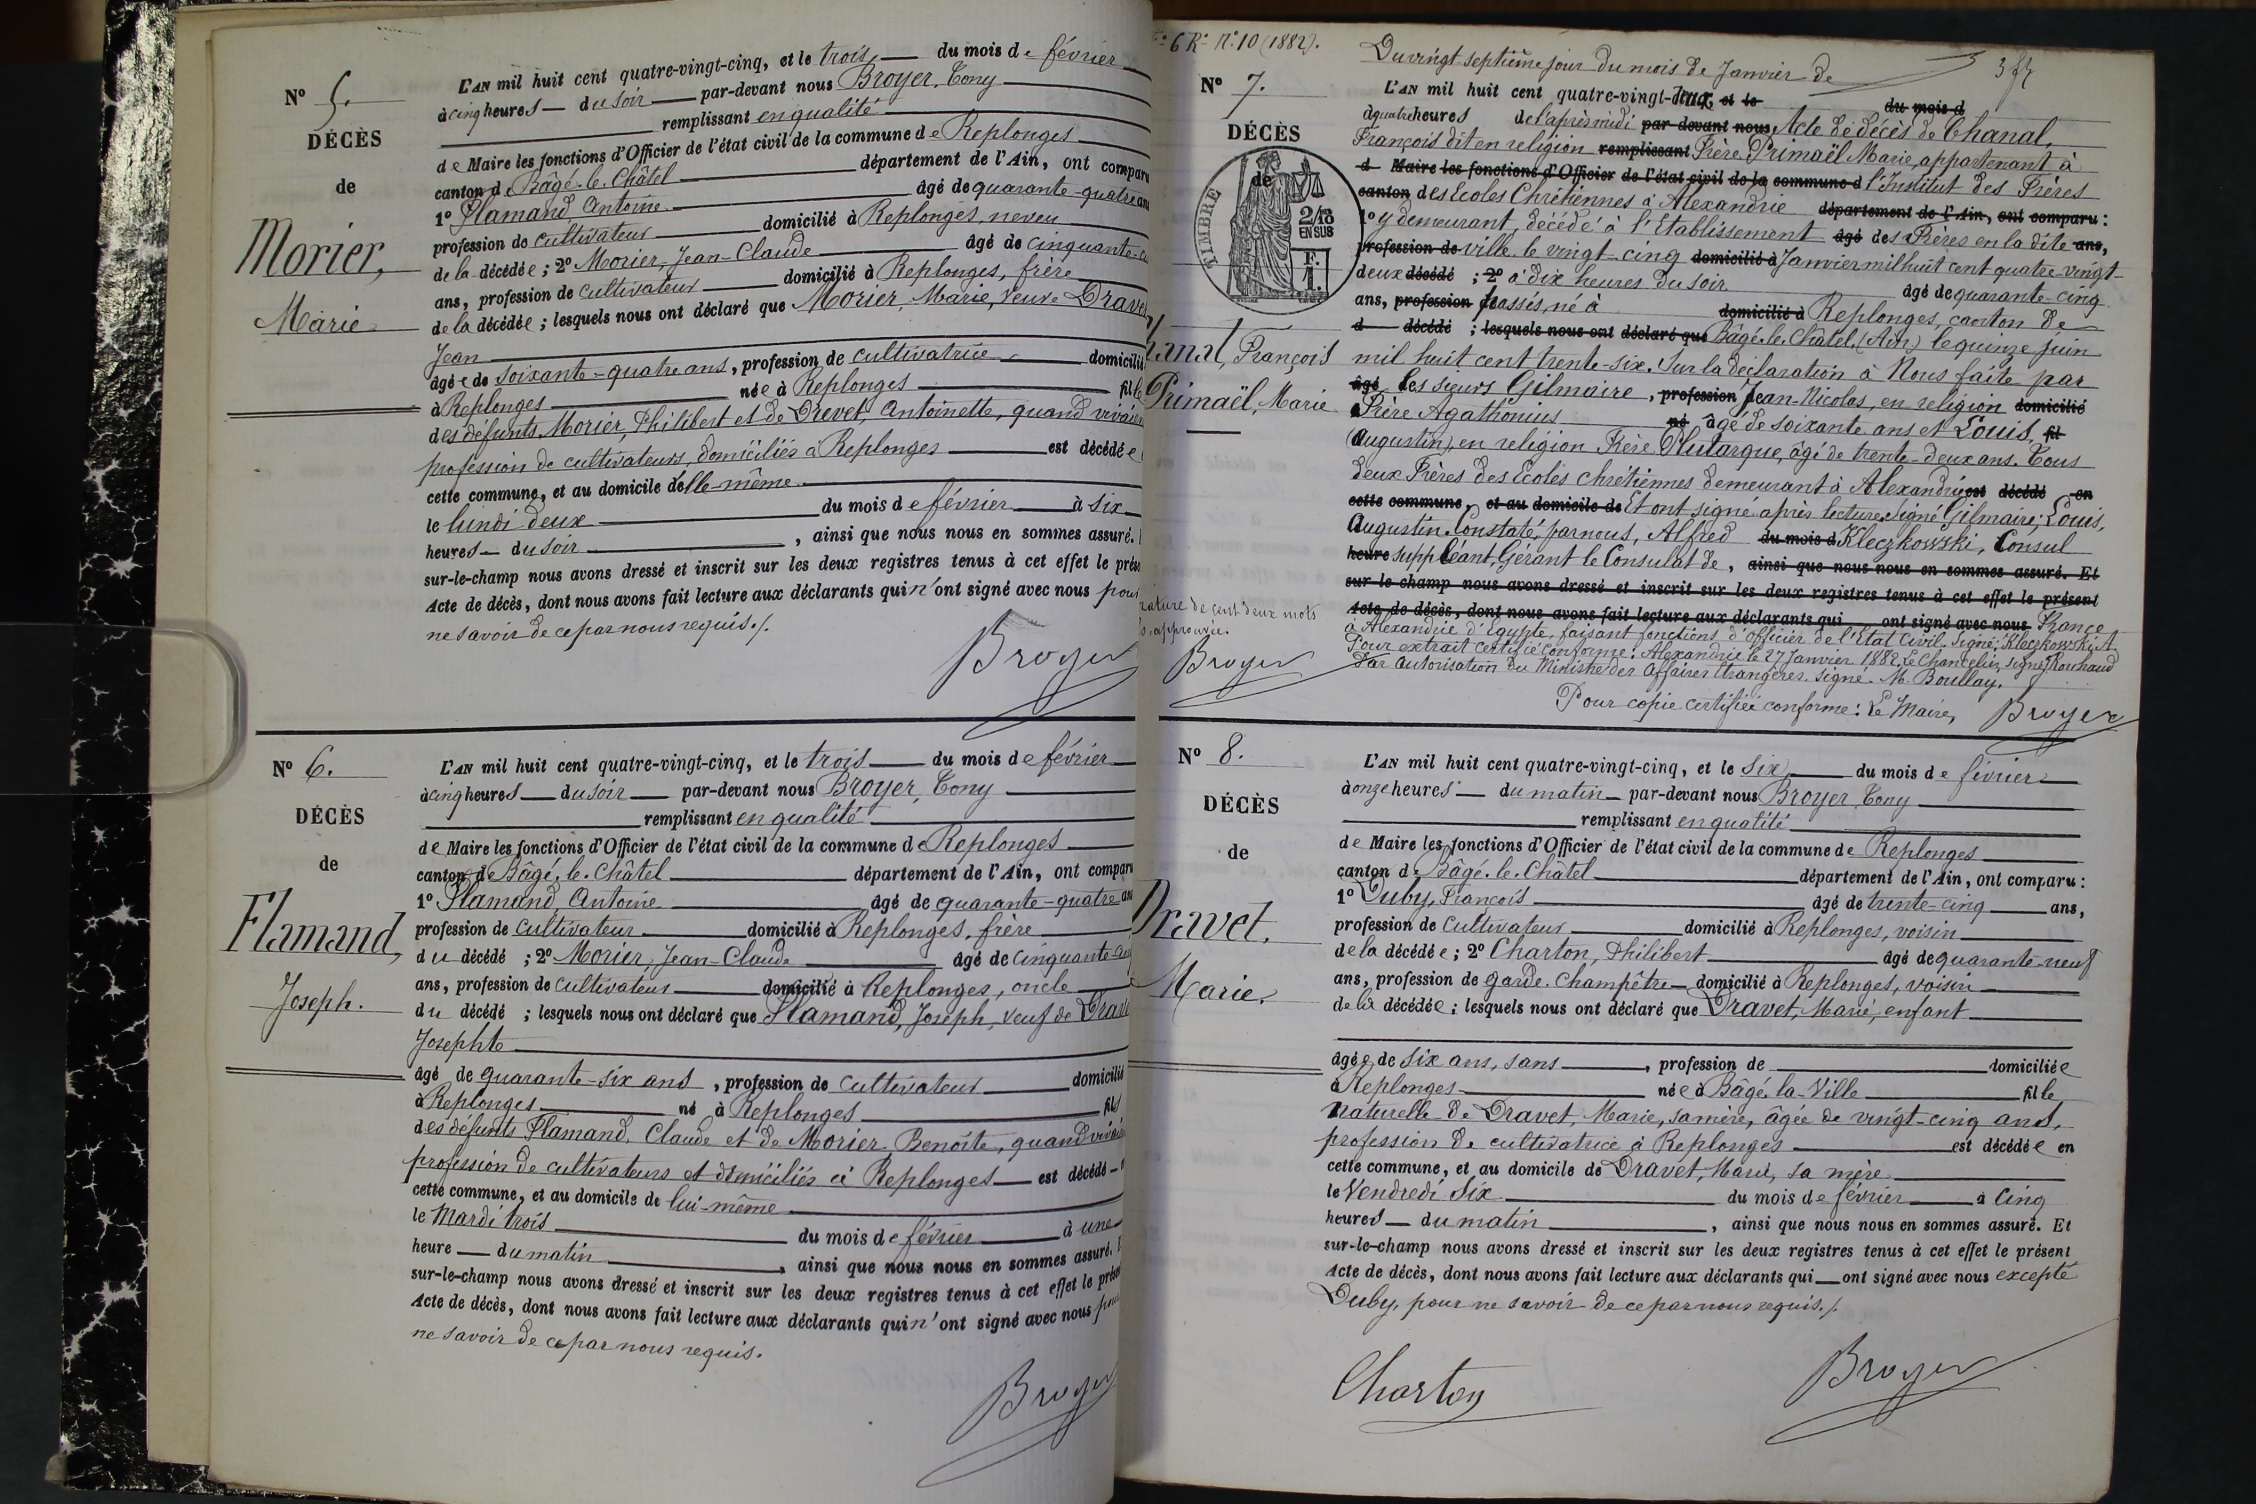 Nº 5.
DÉCÈS
de
Morier,
Marie
L'AN mil huit cent quatre-vingt-cinq, et le trois du mois de février
à cinq heures du soir par-devant nous Broyer, Tony
remplissant en qualité
de Maire les fonctions d'Officier de l'état civil de la commune de Replonges
canton de Bâgé-le-Châtel département de l'Ain, ont comparu
1º Flamand, Antoine âgé de quarante-quatre ans
profession de cultivateur domicilié à Replonges, neveu
de la décédée ; 2º Morier, Jean-Claude âgé de cinquante
ans, profession de cultivateur domicilié à Replonges, frère
de la décédée ; lesquels nous ont déclaré que Morier, Marie, veuve Dravet
Jean
âgée de soixante-quatre ans, profession de cultivatrice domicilié
à Replonges née à Replonges fille
des défunts Morier, Philibert et de Dravet, Antoinette, quand vivaient
profession de cultivateurs, domiciliés à Replonges est décédée
cette commune, et au domicile d'elle-même
le lundi deux du mois de février à six
heures du soir, ainsi que nous nous en sommes assuré.
sur-le-champ nous avons dressé et inscrit sur les deux registres tenus à cet effet le prése
Acte de décès, dont nous avons fait lecture aux déclarants qui n'ont signé avec nous pour
ne savoir de ce par nous requis./.
Broyer
Nº 6.
DÉCÈS
de
Flamand,
Joseph.
L'AN mil huit cent quatre-vingt-cinq, et le trois du mois de février
à cinq heures du soir par-devant nous Broyer, Tony
remplissant en qualité
de Maire les fonctions d'Officier de l'état civil de la commune de Replonges
canton de Bâgé-le-Châtel département de l'Ain, ont comparu
1º Flamand, Antoine âgé de quarante-quatre ans
profession de cultivateur domicilié à Replonges, frère
du décédé ; 2º Morier, Jean-Claude âgé de cinquante
ans, profession de cultivateur domicilié à Replonges, oncle
du décédé ; lesquels nous ont déclaré que Flamand, Joseph, veuf de Drave
Josephte
âgé de quarante-six ans, profession de cultivateur domicilié
à Replonges né à Replonges fils
des défunts Flamand, Claude et de Morier Benoîte, quand vivaient
profession de cultivateurs et domiciliés à Replonges est décédé
cette commune, et au domicile de lui-même
le Mardi trois du mois de février à une
heure du matin, ainsi que nous nous en sommes assuré.
sur-le-champ nous avons dressé et inscrit sur les deux registres tenus à cet effet le prése
Acte de décès, dont nous avons fait lecture aux déclarants qui n'ont signé avec nous pour
ne savoir de ce par nous requis.
Broyer
6 Rº Nº 10 (1882).
Nº 7.
DÉCÈS
de
TIMBRE
2/10 EN SUS
F. 1.
hanal, François
Primaël, Marie
Du vingt septième jour du mois de Janvier de
L'AN mil huit cent quatre-vingt-deux, et le du mois d
à quatre heures de l'après midi par-devant nous Acte de décès de Chanal,
François dit en religion remplissant Frère Primaël Marie, appartenant à
d Maire les fonctions d'Officier de l'état civil de la commune d l'Institut des Frères
canton des Ecoles Chrétiennes à Alexandrie département de l'Ain, ont comparu :
1º y demeurant, décédé à l'Etablissement âgé des Frères en la dite ans,
profession de ville le vingt-cinq domicilié à Janvier mil huit cent quatre-vingt-
deux décédé ; 2º à dix heures du soir âgé de quarante-cinq
ans, profession passés, né à domicilié à Replonges, canton de
d décédé ; lesquels nous ont déclaré que Bâgé-le-Châtel, (Ain) le quinze juin
mil huit cent trente-six. Sur la déclaration à Nous faite par
âgé les sieurs Gilmaire, profession Jean-Nicolas, en religion domicilié
à Frère Agathonius né âgé de soixante ans et Louis, fil
(Augustin), en religion Frère Plutarque, âgé de trente-deux ans. Tous
deux Frères des Ecoles chrétiennes demeurant à Alexandrie est décédé en
cette commune, et au domicile de Et ont signé après lecture. Signé Gilmaire; Louis,
Augustin. Constaté, par nous, Alfred du mois d Kleczkowski, Consul
heure suppléant, Gérant le Consulat de, ainsi que nous nous en sommes assuré. Et
sur-le-champ nous avons dressé et inscrit sur les deux registres tenus à cet effet le présent
Acte de décès, dont nous avons fait lecture aux déclarants qui ont signé avec nous France
à Alexandrie d'Egypte, faisant fonctions d'officier de l'Etat Civil. Signé: Kleczkowski A.
Pour extrait certifié conforme: Alexandrie le 27 Janvier 1882. Le Chancelier, signé,
Par autorisation du Ministre des Affaires étrangères. signé. M. Boullay.
Pour copie certifiée conforme: Le Maire, Broyer
rature de cent deux mots
approuvée.
Broyer
Nº 8.
DÉCÈS
de
Dravet,
Marie.
L'AN mil huit cent quatre-vingt-cinq, et le six du mois de février
à onze heures du matin par-devant nous Broyer, Tony
remplissant en qualité
de Maire les fonctions d'Officier de l'état civil de la commune de Replonges
canton de Bâgé-le-Châtel département de l'Ain, ont comparu :
1º Duby, François âgé de trente-cinq ans,
profession de cultivateur domicilié à Replonges, voisin
de la décédée ; 2º Charton, Philibert âgé de quarante-neuf
ans, profession de garde-Champêtre domicilié à Replonges, voisin
de la décédée ; lesquels nous ont déclaré que Dravet, Marie, enfant
âgée de six ans, sans, profession de domiciliée
à Replonges née à Bâgé-la-Ville fille
naturelle de Dravet, Marie, sa mère, âgée de vingt-cinq ans,
profession de cultivatrice à Replonges est décédée en
cette commune, et au domicile de Dravet, Marie, sa mère
le Vendredi six du mois de février à cinq
heures du matin, ainsi que nous nous en sommes assuré. Et
sur-le-champ nous avons dressé et inscrit sur les deux registres tenus à cet effet le présent
Acte de décès, dont nous avons fait lecture aux déclarants qui ont signé avec nous excepté
Duby, pour ne savoir de ce par nous requis./.
Charton
Broyer